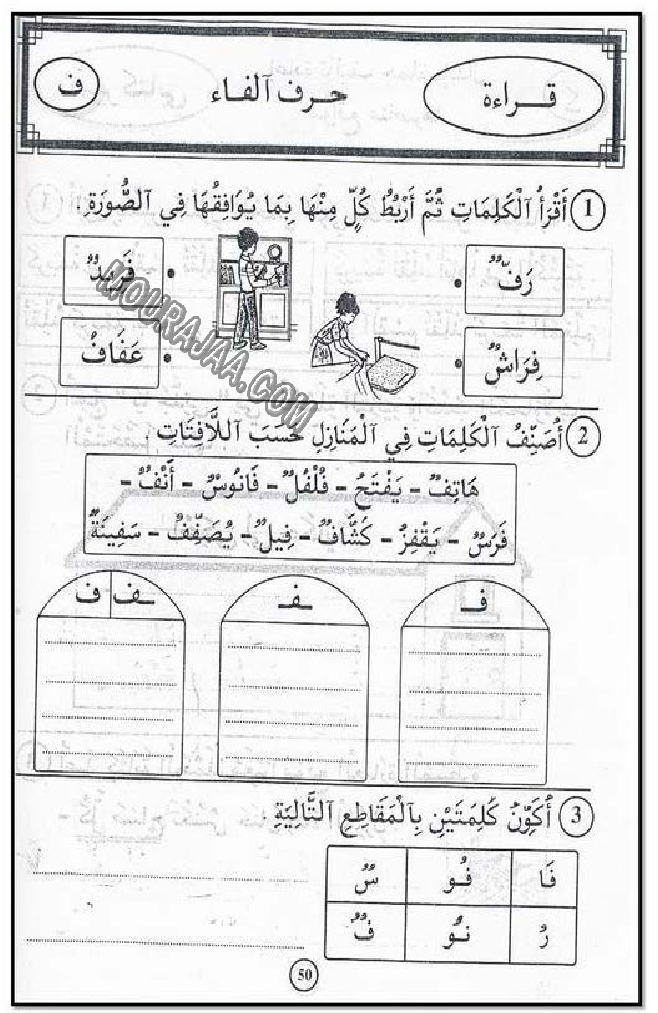 قراءة حرف الفاء ف
1 أَقْرَأُ الْكَلِمَاتِ ثُمَّ أَرْبُطُ كُلٍّ مِنْهَا بِمَا يُوَافِقُهَا فِي الصُّورَةِ .
رَفٌّ • • فَرِيدٌ
فِرَاشٌ • • عَفَافٌ
MOURAJAA.COM
2 أُصَنِّفُ الْكَلِمَاتِ فِي الْمَنَازِلِ حَسَبَ اللَّافِتَاتِ .
هَاتِفٌ - يَفْتَحُ - فُلْفُلٌ - فَانُوسٌ - أَنْفٌ -
فَرَسٌ - يَقْفِزُ - كَشَّافٌ - فِيلٌ - يُصَفِّفُ - سَفِينَةٌ
فـ ـفـ ـف ف
3 أُكَوِّنُ كَلِمَتَيْنِ بِالْمَقَاطِعِ التَّالِيَةِ .
فَا فُو سٌ
رُ نُو فٌ
50